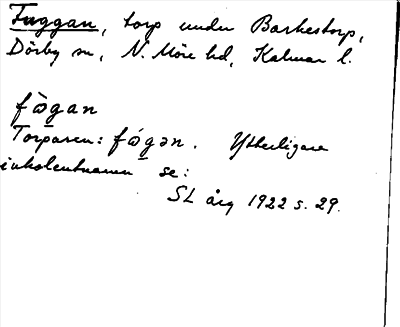 Fuggan, torp under Barkestorp,
Dörby sn, N. Möre hd, Kalmar l.
fògan
Torparen: fógan. Ytterligare
inkolentnamn se:
SL årg 1922 s. 29.